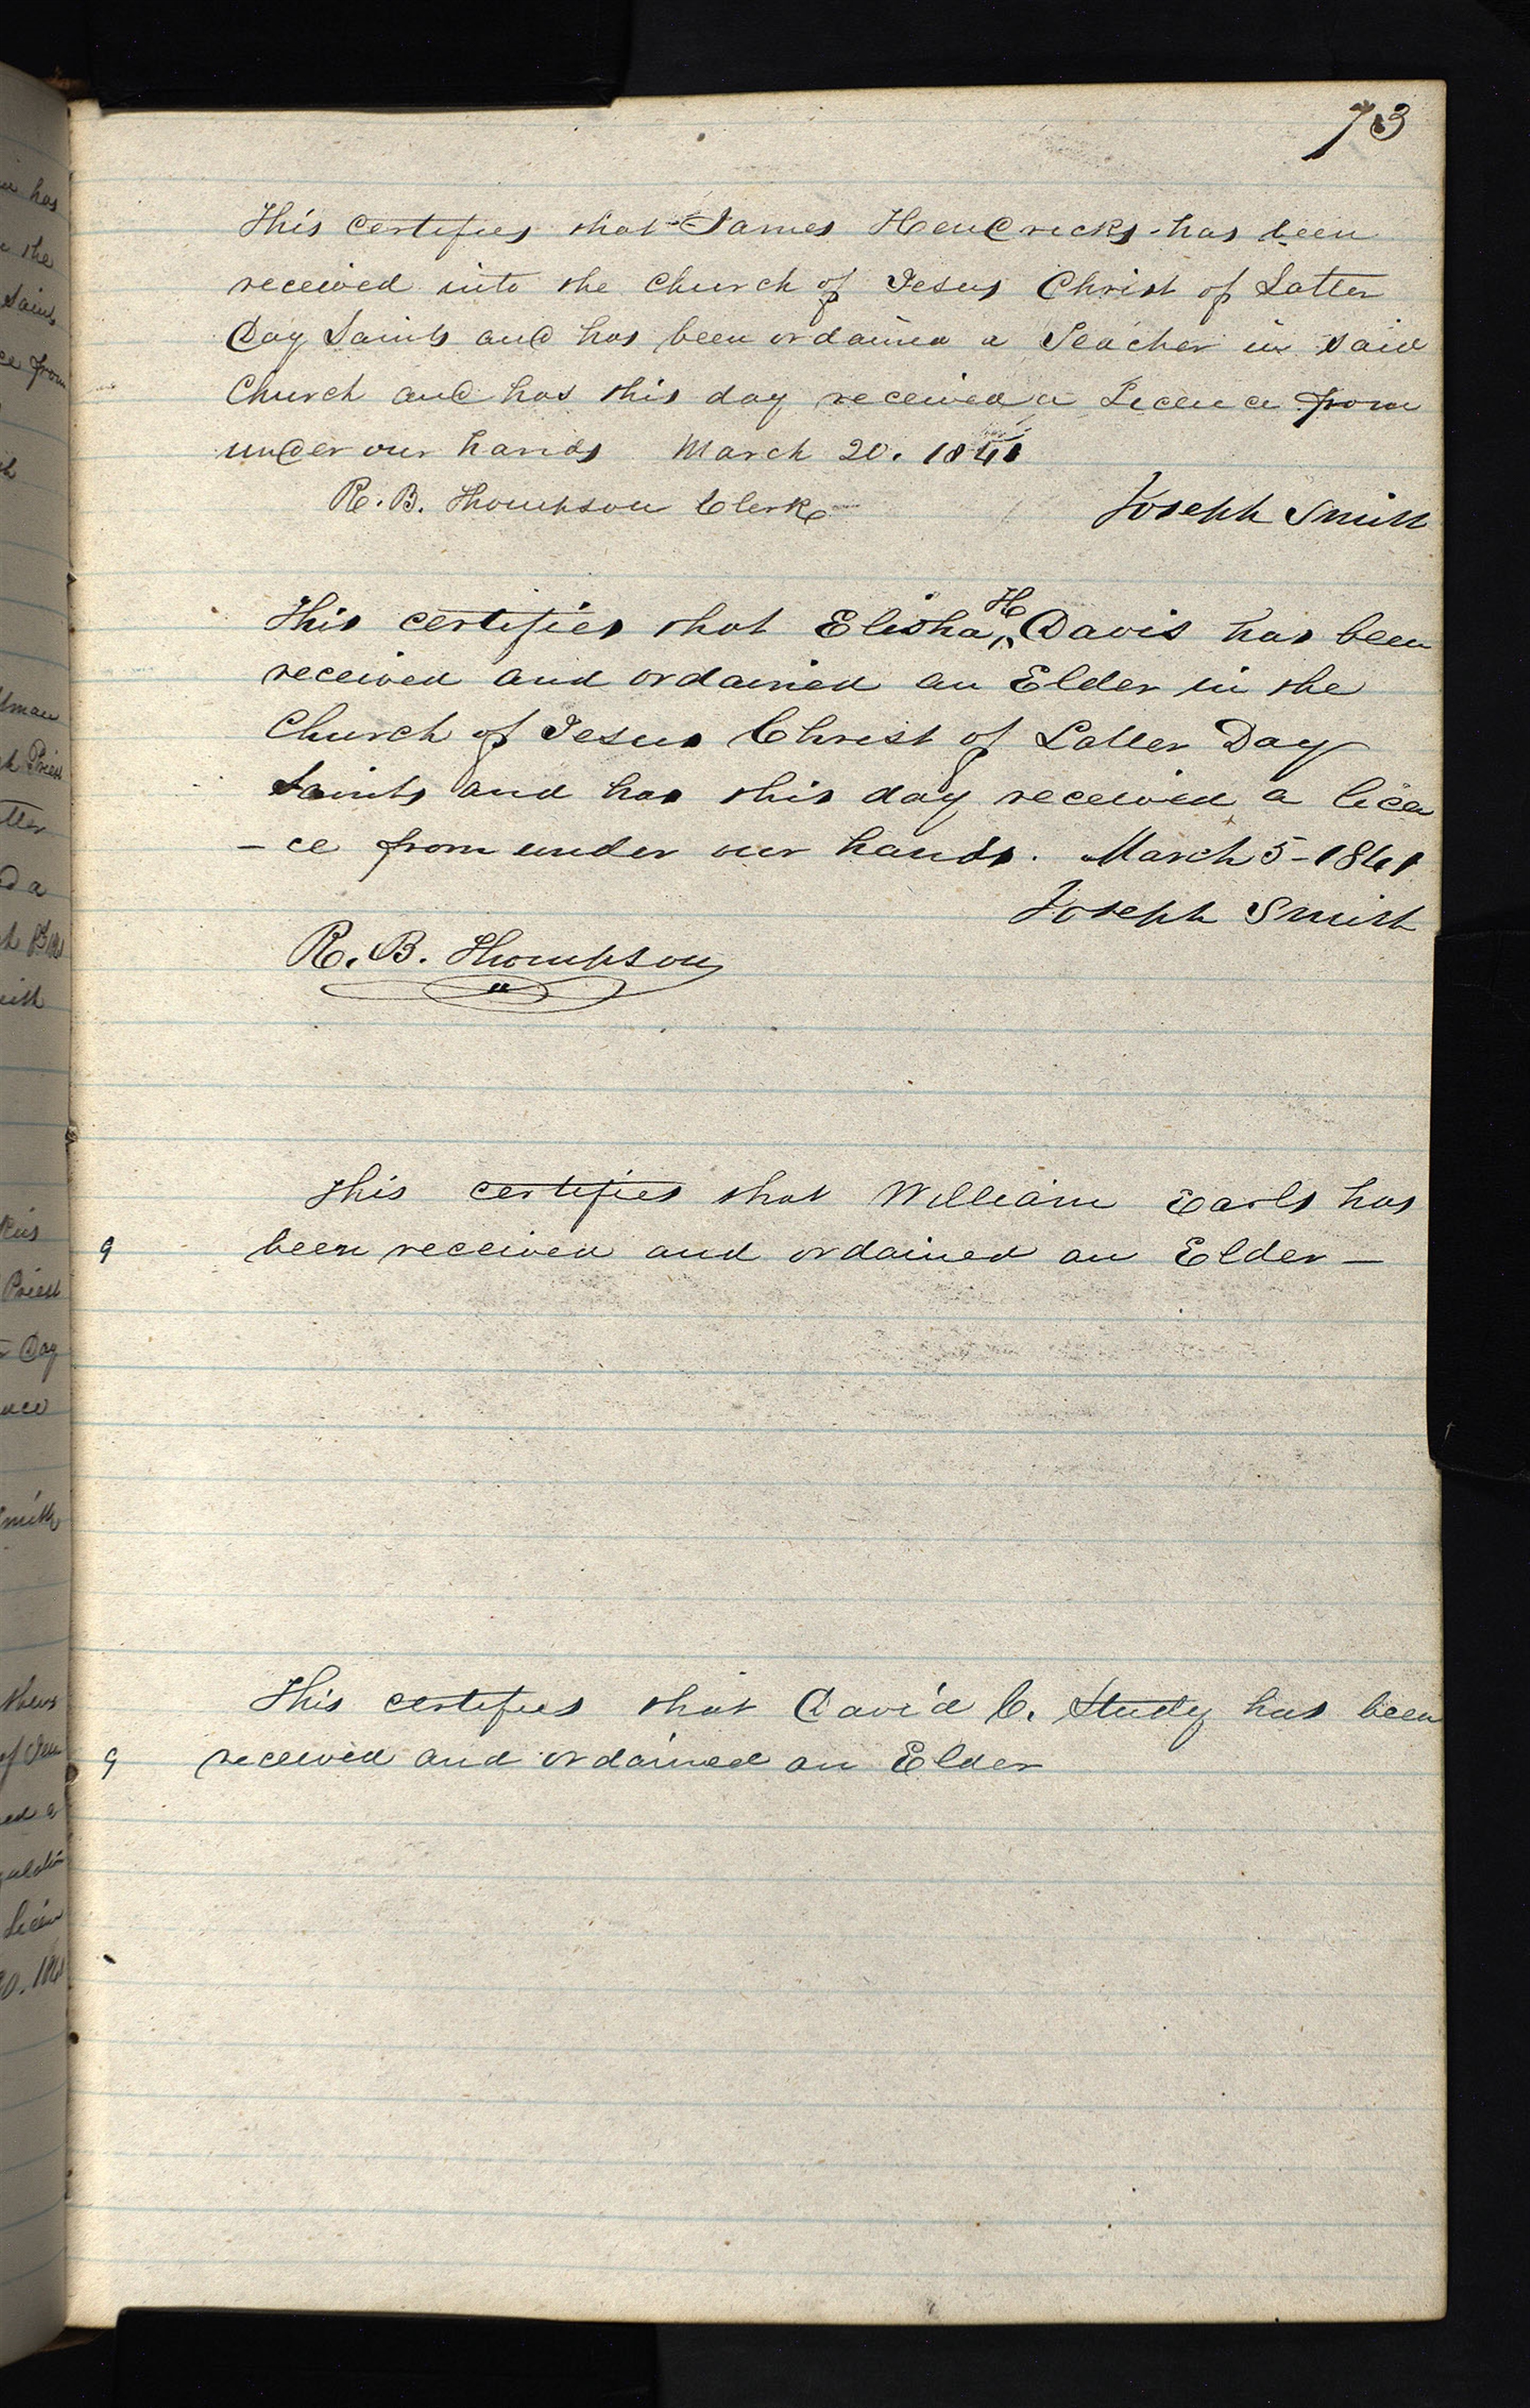 73
This certifies that James Hendricks has been
received into the Church of Jesus Christ of Latter
Day Saints and has been ordained a Teacher in said
Church and has this day received a Licence from
under our hands March 20. 1841
R. B. Thompson Clerk Joseph Smith
This certifies that Elisha H Davis has been
received and ordained an Elder in the
Church of Jesus Christ of Latter Day
Saints and has this day received a licen
-ce from under our hands. March 5-1841
Joseph Smith
R. B. Thompson
This certifies that William Earls has
9 been received and ordained an Elder —
This certifies that David C. Study has been
9 received and ordained an Elder
has
the
Saints
ce from
Priest
tter
d a
Priest
Day
Smith